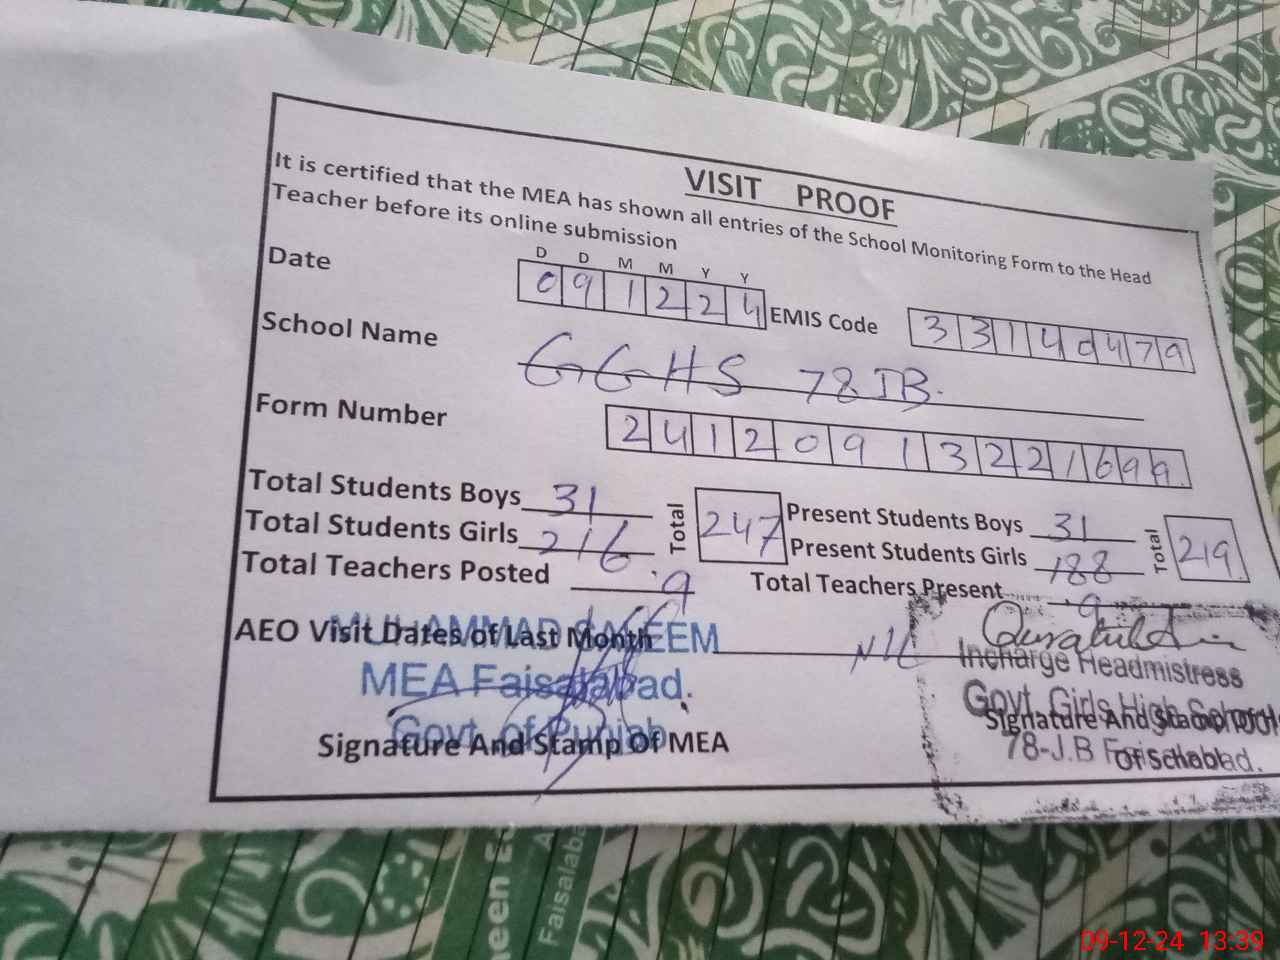 VISIT PROOF
It is certified that the MEA has shown all entries of the School Monitoring Form to the Head
Teacher before its online submission
D D M M Y Y
Date 091224 EMIS Code 33140479
School Name GGHS 78JB.
Form Number 24120913221699
Total Students Boys 31 Total 247 Present Students Boys 31 Total 219
Total Students Girls 216 Present Students Girls 188
Total Teachers Posted 9 Total Teachers Present 9
AEO Visit Dates of Last Month Nil
MUHAMMAD
MEA Faisalabad.
Govt. of Punjab
Signature And Stamp Of MEA
Incharge Headmistress
Govt. Girls High School
Signature And Stamp Of
78-J.B Faisalabad.
Of School
een
Faisalaba
09-12-24 13:39